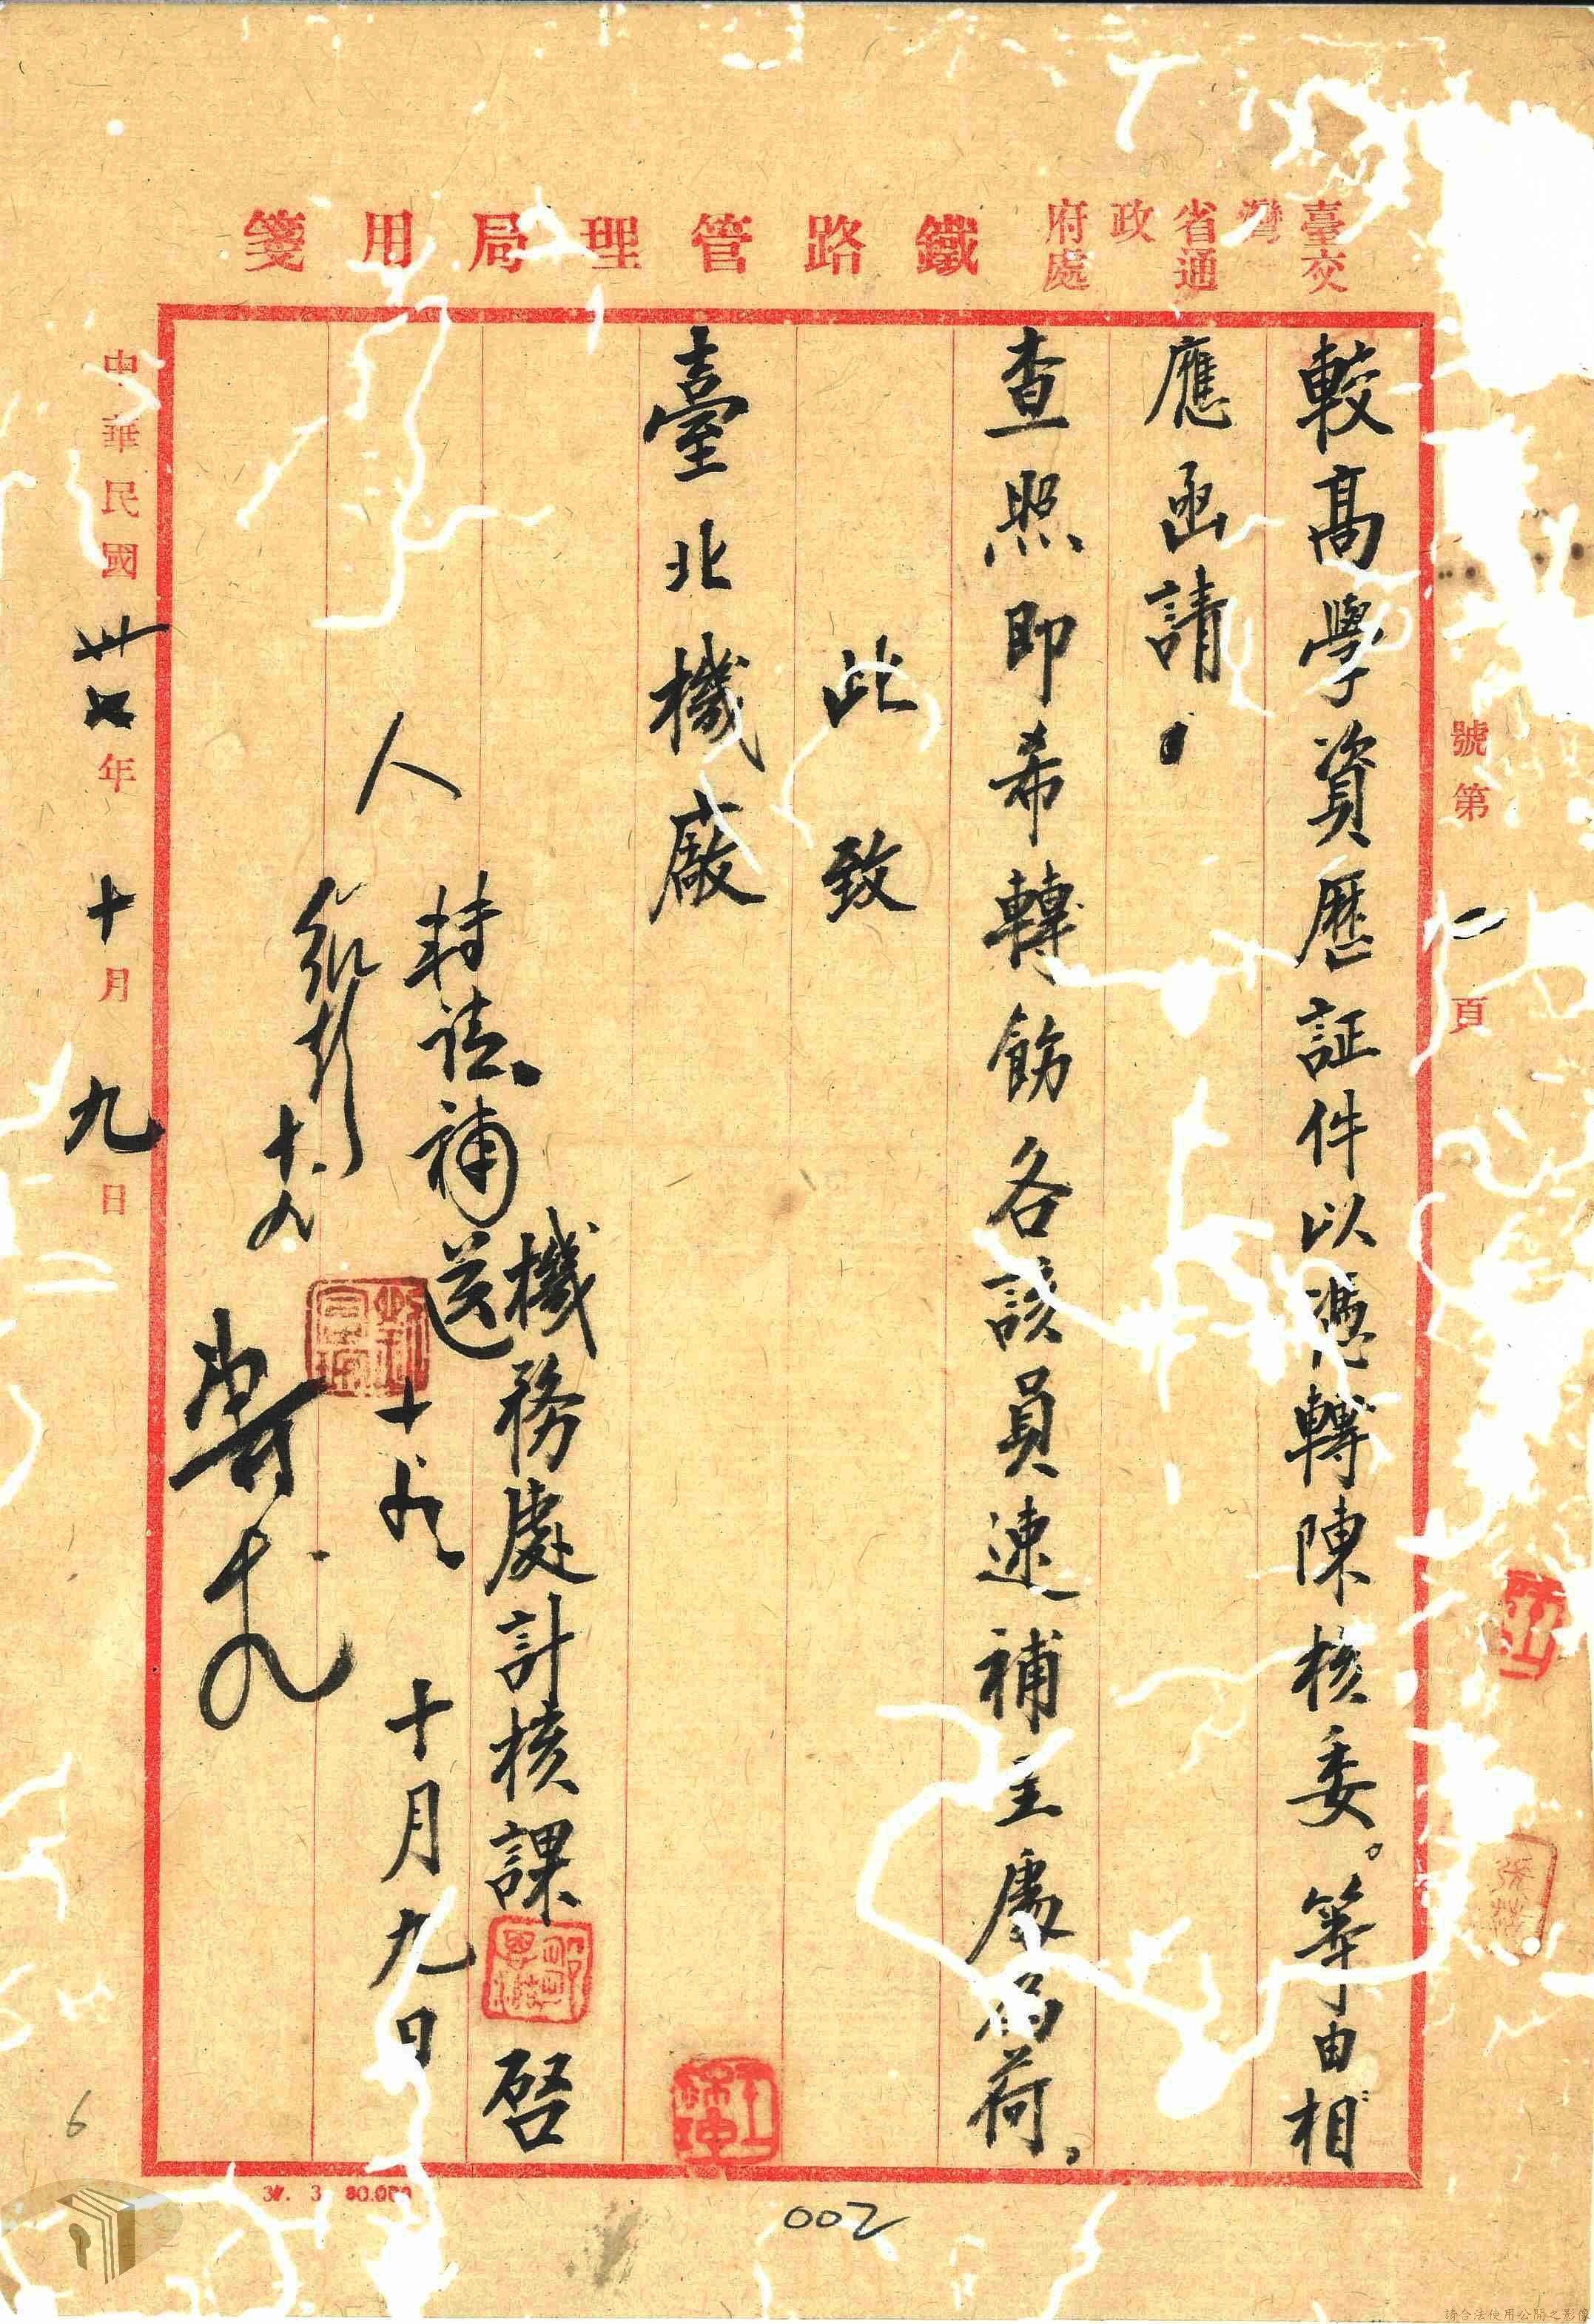 臺灣省政府
交通處
鐵路管理局用箋
號第 一 頁
較高學資歷証件以憑轉陳核委。等由相
應函請。
查照即希轉飭各該員速補主處為荷，
此致
臺北機廠
機務處計核課 啓
十月九日
轉請補送
人
十九
中華民國卅七年十月九日
37. 3 80.000
002
6
請合法使用公開之影像